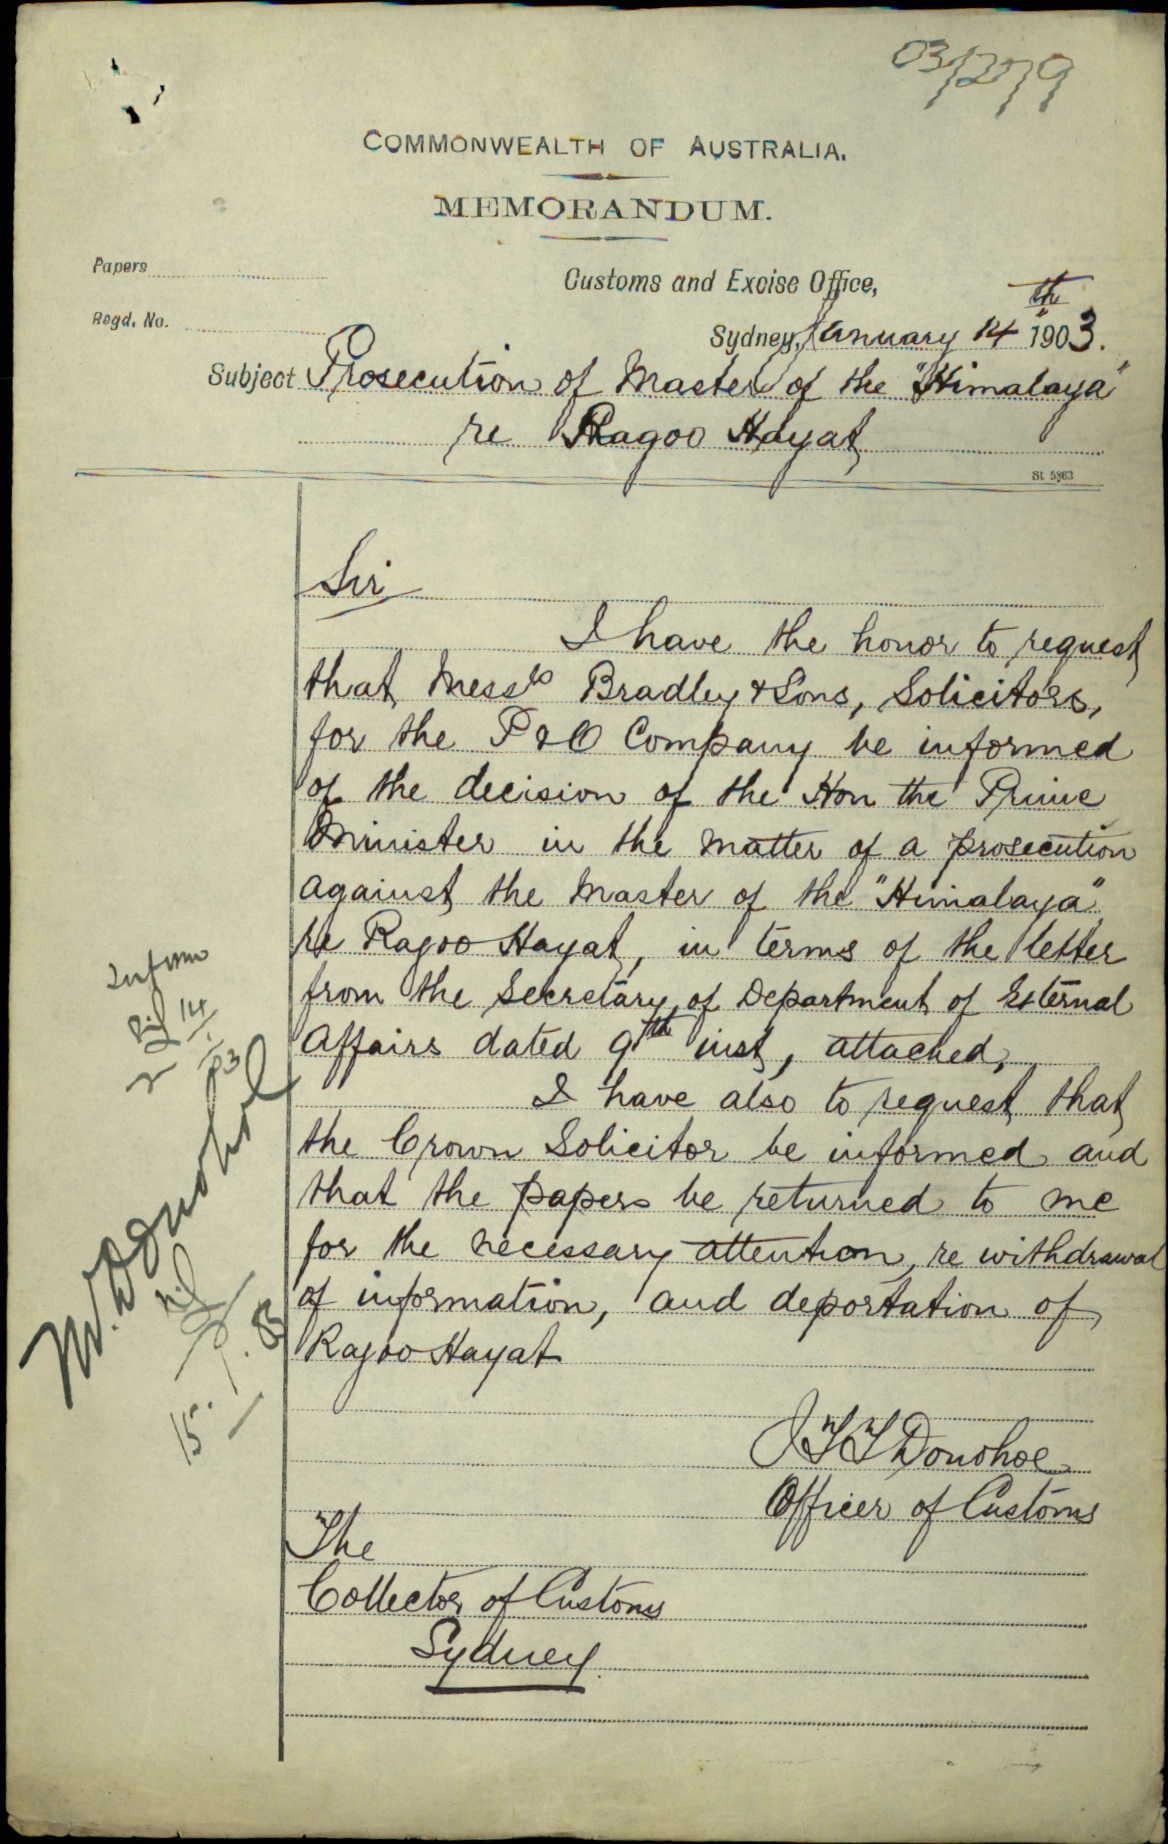 03/279
COMMONWEALTH OF AUSTRALIA.
MEMORANDUM.
Papers
Customs and Excise Office,
Regd. No.
Sydney, January 14th 1903.
Subject Prosecution of Master of the "Himalaya"
re Ragoo Hayat
St. 5863
Sir
I have the honor to request
that Messrs Bradley & Sons, Solicitors,
for the P & O Company be informed
of the decision of the Hon the Prime
Minister in the matter of a prosecution
against the Master of the "Himalaya"
re Ragoo Hayat, in terms of the letter
from the Secretary of Department of External
Affairs dated 9th inst, attached,
I have also to request that
the Crown Solicitor be informed and
that the papers be returned to me
for the necessary attention, re withdrawal
of information, and deportation of
Ragoo Hayat
Inform
14/1/03
Mr. Donohoe
15.1.03
J T T Donohoe
Officer of Customs
The
Collector of Customs
Sydney